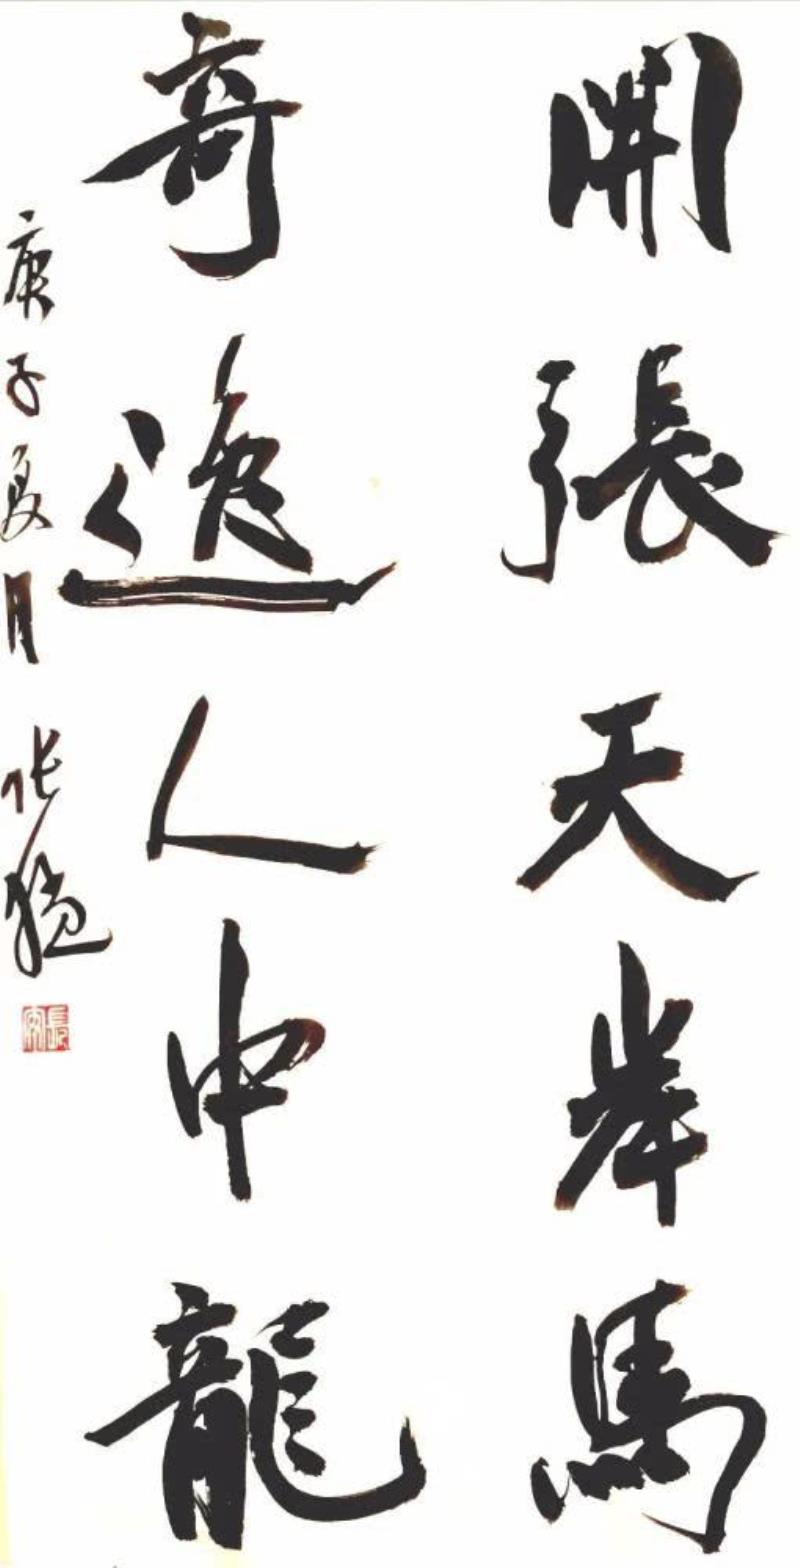 開張天岸馬
奇逸人中龍
庚子夏月 张猛